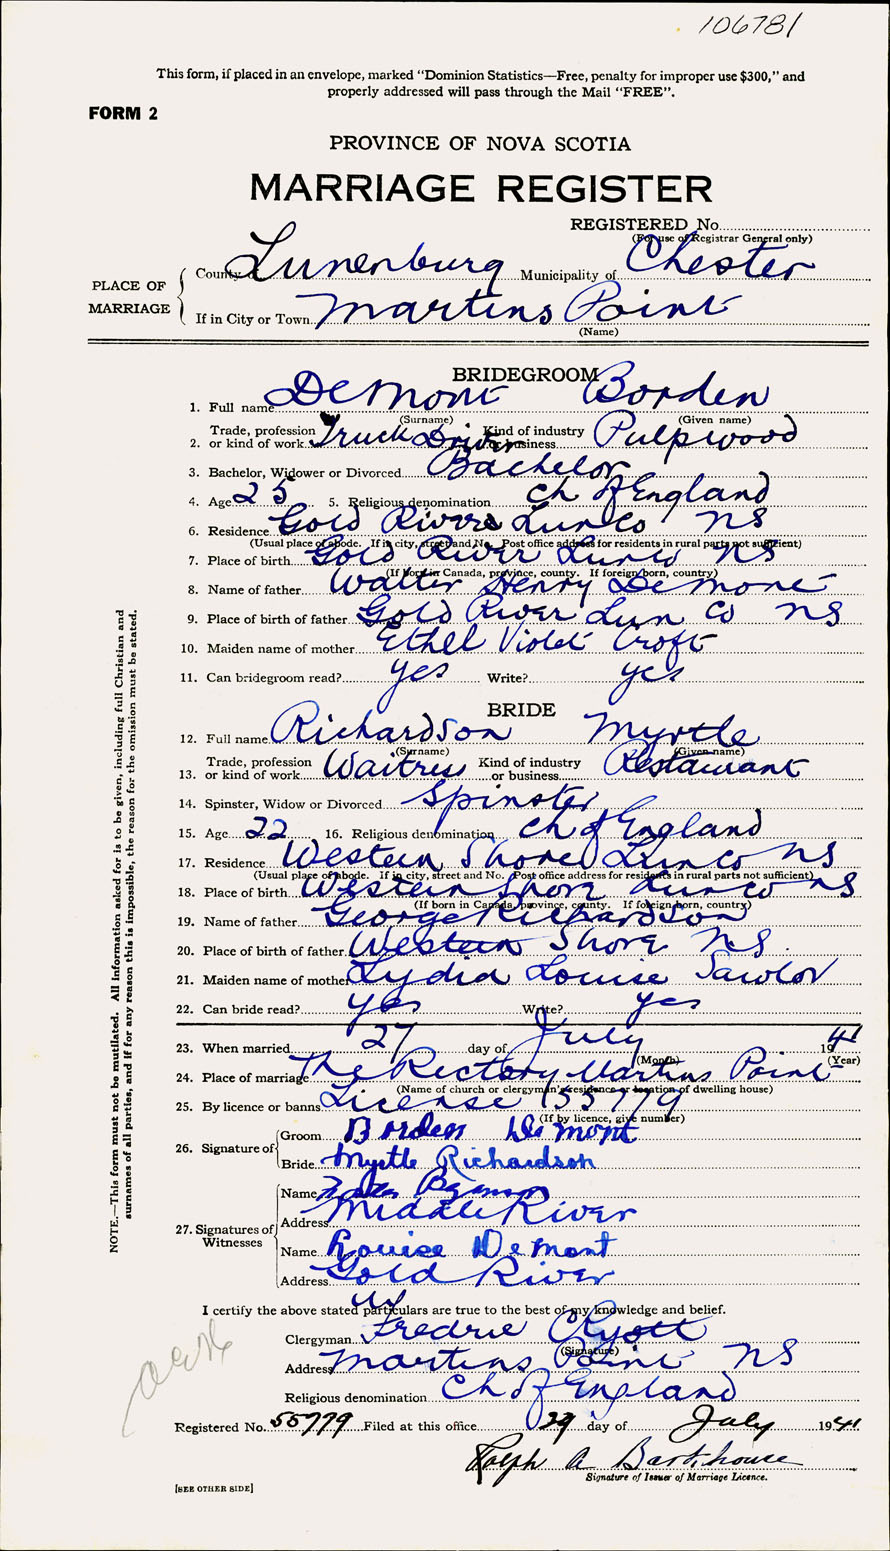 106781
This form, if placed in an envelope, marked "Dominion Statistics—Free, penalty for improper use $300," and
properly addressed will pass through the Mail "FREE".
FORM 2
PROVINCE OF NOVA SCOTIA
MARRIAGE REGISTER
REGISTERED No.
(For use of Registrar General only)
PLACE OF MARRIAGE
County of Lunenburg Municipality of Chester
If in City or Town Martins Point
(Name)
BRIDEGROOM
1. Full name DeMont Borden
(Surname) (Given name)
2. Trade, profession or kind of work Truck Driver Kind of industry or business Pulpwood
3. Bachelor, Widower or Divorced Bachelor
4. Age 25 5. Religious denomination Ch of England
6. Residence Gold River Lun Co NS
(Usual place of abode. If in city, street and No. Post office address for residents in rural parts not sufficient)
7. Place of birth Gold River Lun Co NS
(If born in Canada, province, county. If foreign born, country)
8. Name of father Walter Henry DeMont
9. Place of birth of father Gold River Lun Co NS
10. Maiden name of mother Ethel Violet Croft
11. Can bridegroom read? yes Write? yes
BRIDE
12. Full name Richardson Myrtle
(Surname) (Given name)
13. Trade, profession or kind of work Waitress Kind of industry or business Restaurant
14. Spinster, Widow or Divorced Spinster
15. Age 22 16. Religious denomination Ch of England
17. Residence Western Shore Lun Co NS
(Usual place of abode. If in city, street and No. Post office address for residents in rural parts not sufficient)
18. Place of birth Western Shore Lun Co NS
(If born in Canada, province, county. If foreign born, country)
19. Name of father George Richardson
20. Place of birth of father Western Shore NS.
21. Maiden name of mother Lydia Louise Sawlor
22. Can bride read? yes Write? yes
23. When married 27 day of July 1941
(Month) (Year)
24. Place of marriage The Rectory Martins Point
(Name of church or clergyman's residence or location of dwelling house)
25. By licence or banns License 55779
(If by licence, give number)
26. Signature of
Groom Borden DeMont
Bride Myrtle Richardson
27. Signatures of Witnesses
Name
Address Middle River
Name Louise DeMont
Address Gold River
I certify the above stated particulars are true to the best of my knowledge and belief.
Clergyman Fredric C Ryott
(Signature)
Address Martins Point NS
Religious denomination Ch of England
Registered No. 55779 Filed at this office 29 day of July 1941
Ralph A Barkhouse
Signature of Issuer of Marriage Licence.
[SEE OTHER SIDE]
NOTE.—This form must not be mutilated. All information asked for is to be given, including full Christian and
surnames of all parties, and if for any reason this is impossible, the reason for the omission must be stated.